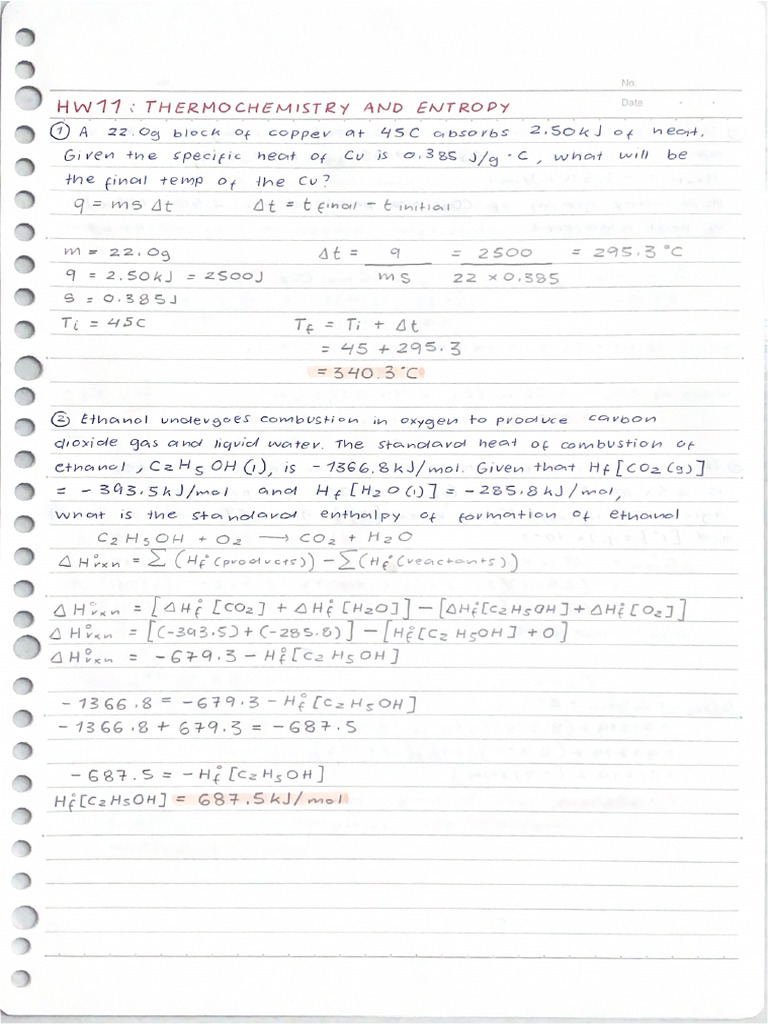 No.
Date
HW11: THERMOCHEMISTRY AND ENTROPY
① A 22.0g block of copper at 45C absorbs 2.50kJ of heat.
Given the specific heat of Cu is 0.385 J/g·C, what will be
the final temp of the Cu?
q = ms Δt Δt = t final − t initial
m = 22.0g Δt = q/ms = 2500/22 × 0.385 = 295.3°C
q = 2.50kJ = 2500J
s = 0.385J
Ti = 45C Tf = Ti + Δt
= 45 + 295.3
= 340.3°C
② Ethanol undergoes combustion in oxygen to produce carbon
dioxide gas and liquid water. The standard heat of combustion of
ethanol, C2H5OH(l), is −1366.8kJ/mol. Given that Hf[CO2(g)]
= −393.5kJ/mol and Hf[H2O(l)] = −285.8kJ/mol,
what is the standard enthalpy of formation of ethanol
C2H5OH + O2 ⟶ CO2 + H2O
ΔH°rxn = Σ(Hf°(products)) − Σ(Hf°(reactants))
ΔH°rxn = [ΔHf°[CO2] + ΔHf°[H2O]] − [ΔHf°[C2H5OH] + ΔHf°[O2]]
ΔH°rxn = [(−393.5) + (−285.8)] − [Hf°[C2H5OH] + 0]
ΔH°rxn = −679.3 − Hf°[C2H5OH]
−1366.8 = −679.3 − Hf°[C2H5OH]
−1366.8 + 679.3 = −687.5
−687.5 = −Hf°[C2H5OH]
Hf°[C2H5OH] = 687.5kJ/mol